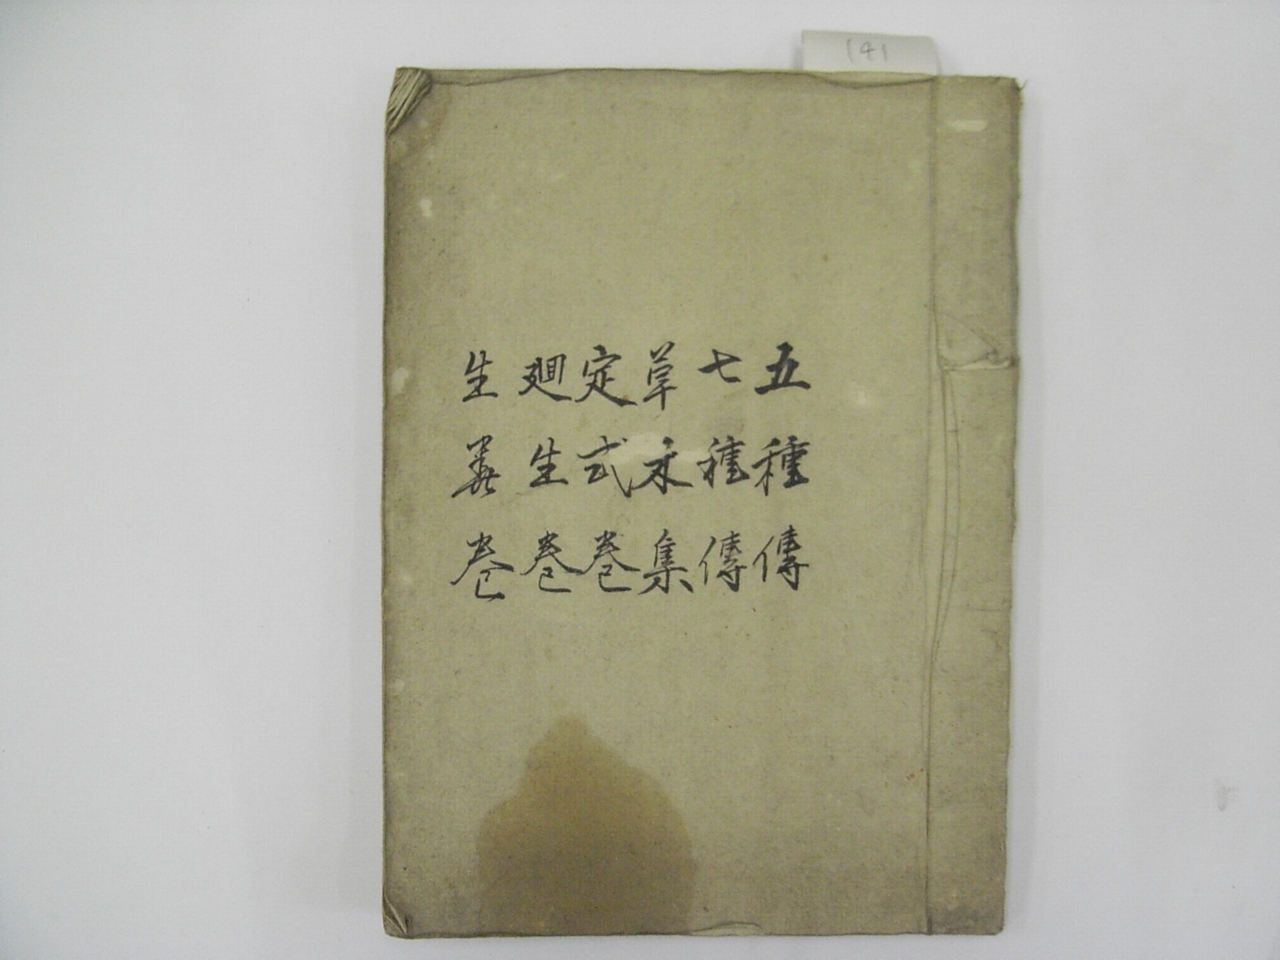 141
五種傳
七種傳
草木集
定式卷
廻生卷
生 卷